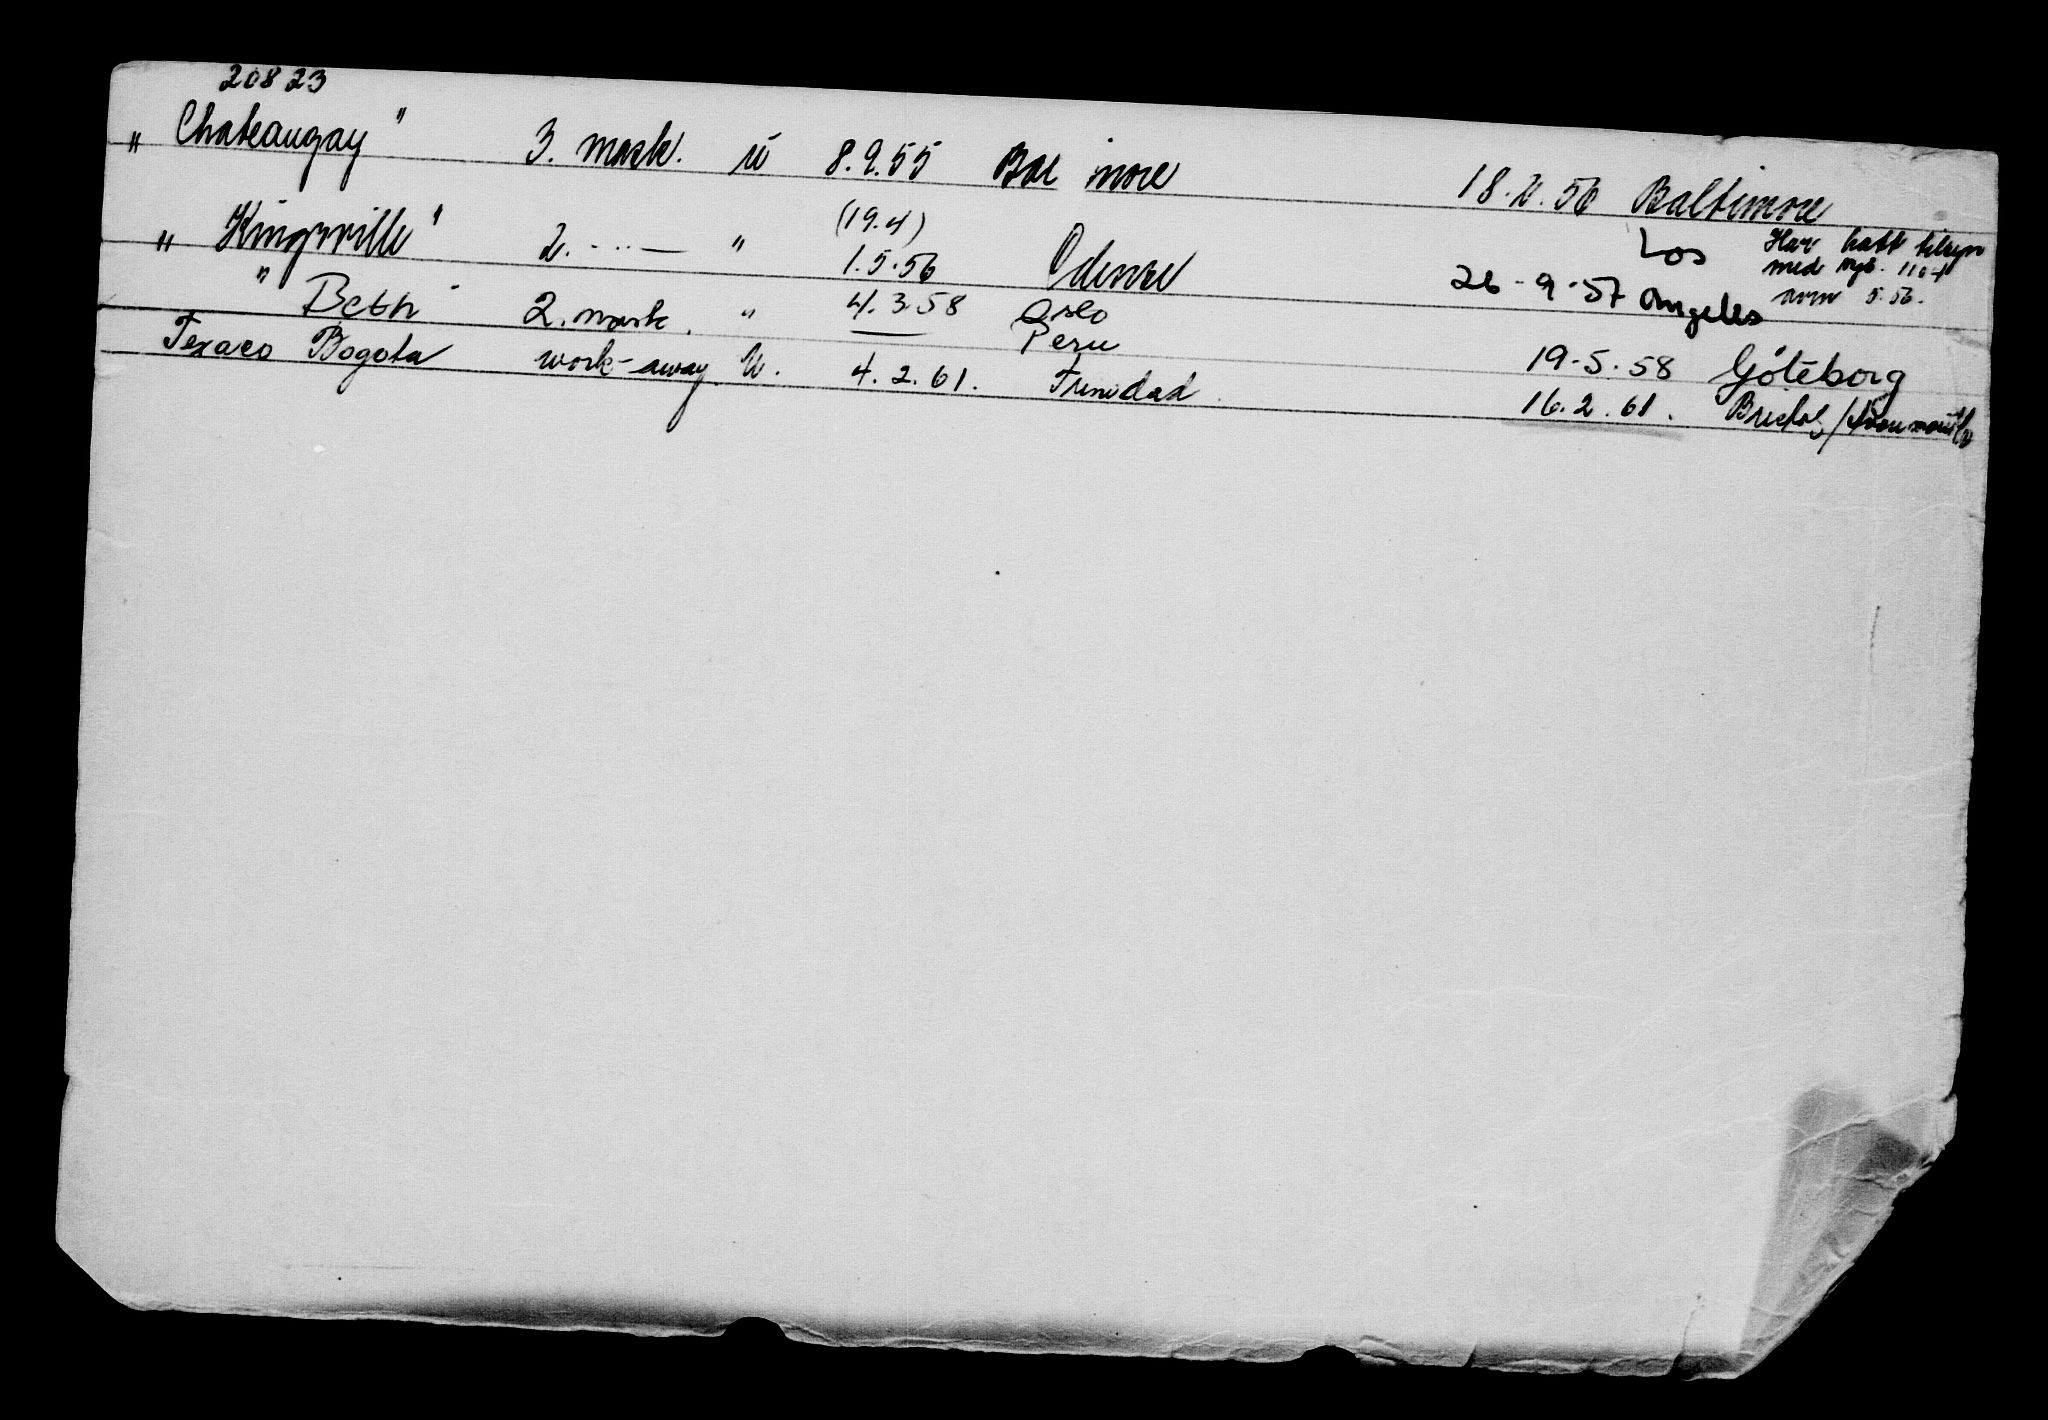 20823
" Chateaugay " 3. mask. u 8.9.55 Bal more 18. 56 Baltimore
(19.4)
" Kingsville " 2. -"- " 1.5.56 Odense 26-9-57 Los Angeles
Har hatt tilsyn
med 
 5.56.
" Beth " 2. mask. " 4.3.58 Oslo 19-5.58 Göteborg
Peru
Texaco Bogota work-away u. 4.2.61. Trinidad 16.2.61. Bristol/Avonmouth